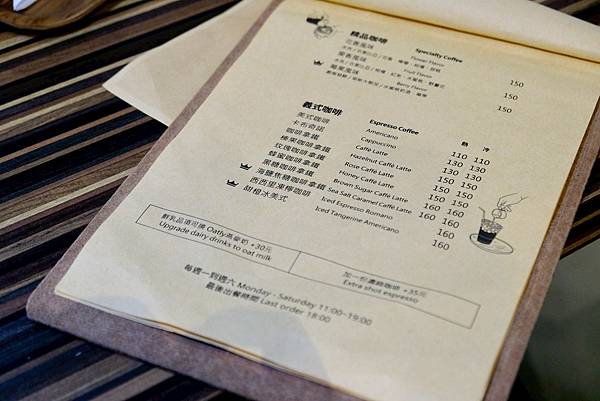 精品咖啡 Specialty Coffee
花香風味 Flower Flavor 150
果香風味 Fruit Flavor 150
莓果風味 Berry Flavor 150
義式咖啡 Espresso Coffee 熱 冷
美式咖啡 Americano 110 110
卡布奇諾 Cappuccino 130 130
咖啡拿鐵 Caffè Latte 130 130
榛果咖啡拿鐵 Hazelnut Caffè Latte 150 150
玫瑰咖啡拿鐵 Rose Caffè Latte 150 150
蜂蜜咖啡拿鐵 Honey Caffè Latte 150 150
黑糖咖啡拿鐵 Brown Sugar Caffè Latte 150 150
海鹽焦糖咖啡拿鐵 Sea Salt Caramel Caffè Latte 160 160
西西里凍檸咖啡 Iced Espresso Romano 160
甜橙冰美式 Iced Tangerine Americano 160
鮮乳品項可換 Oatly燕麥奶 +30元
Upgrade dairy drinks to oat milk
加一份濃縮咖啡 +35元
Extra shot espresso
每週一到週六 Monday - Saturday 11:00~19:00
最後出餐時間 Last order 18:00